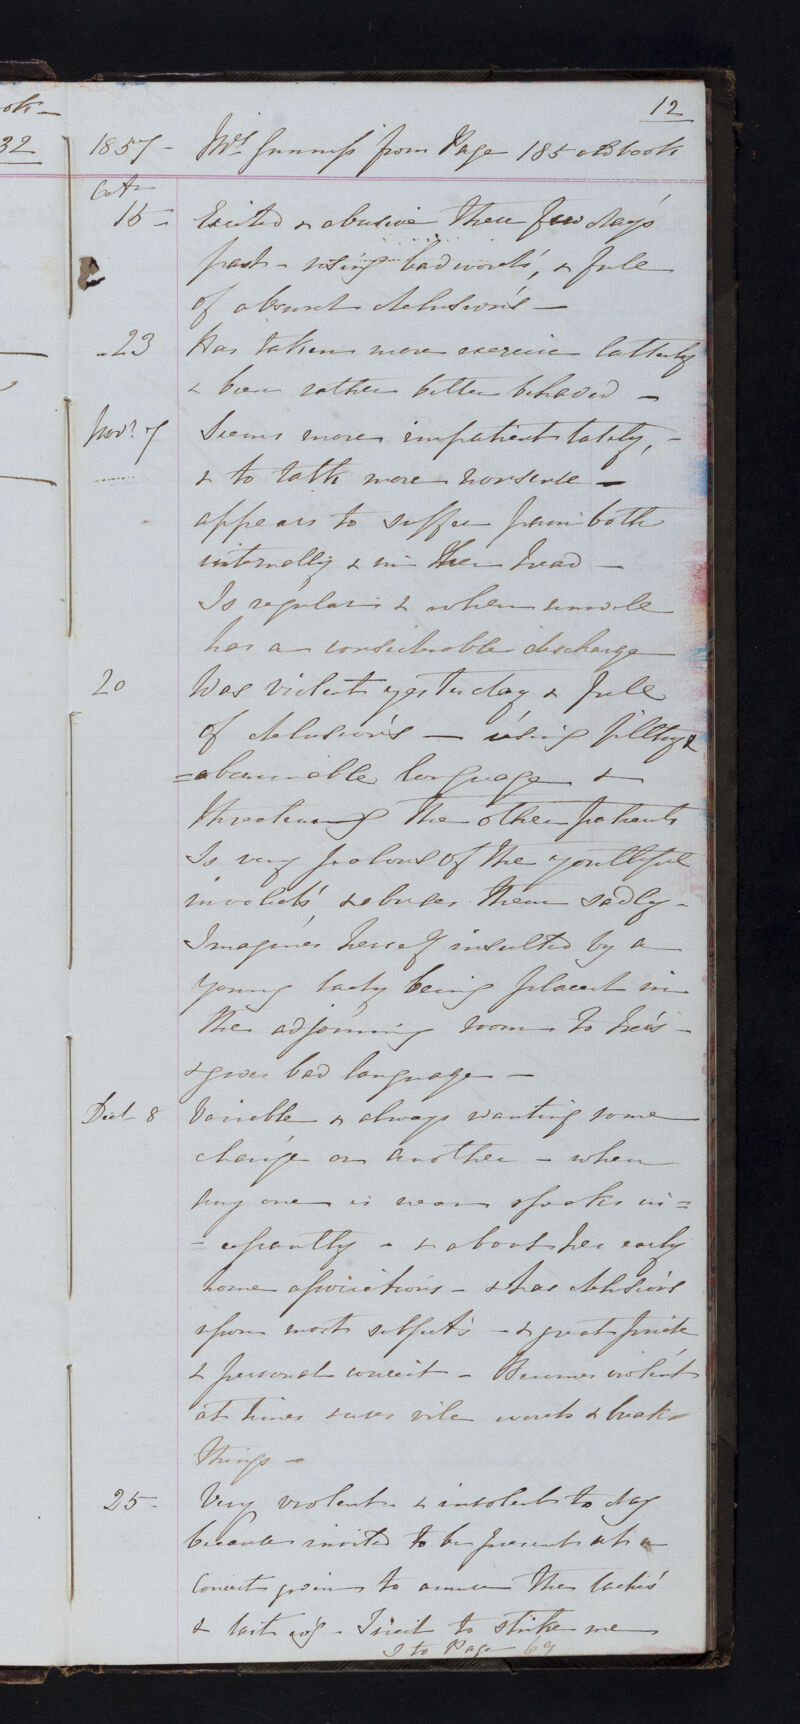 ook -
32
12
1857 - Mrs Gunness from Page 185 old book
Octr
16 = Excited & abusive these few days
past - using bad words, & full
of absurd delusions -
23 Has taken more exercise latterly
& been rather better behaved -
Novr 7 Seems more impatient lately, -
& to talk more nonsense -
appears to suffer pain both
internally & in her head -
Is regular & when unwell
has a considerable discharge
20 Was violent yesterday & full
of delusions - using filthy &
= abominable language &
threatening the other patients
Is very jealous of the youthful
invalids & abuses them sadly -
Imagines herself insulted by a
young lady being placed in
the adjoining room to hers -
& gives bad language -
Dect 8 Variable & always wanting some
change or another - when
any one is near speaks in=
=cessantly - & about her early
home associations - & has delusions
upon most subjects - & great pride
& personal conceit - Becomes violent
at times & uses vile words & breaks
things -
25 - Very violent & insolent to day
because invited to be present at a
Concert given to amuse the ladies
& last - Tried to strike me
to Page 69